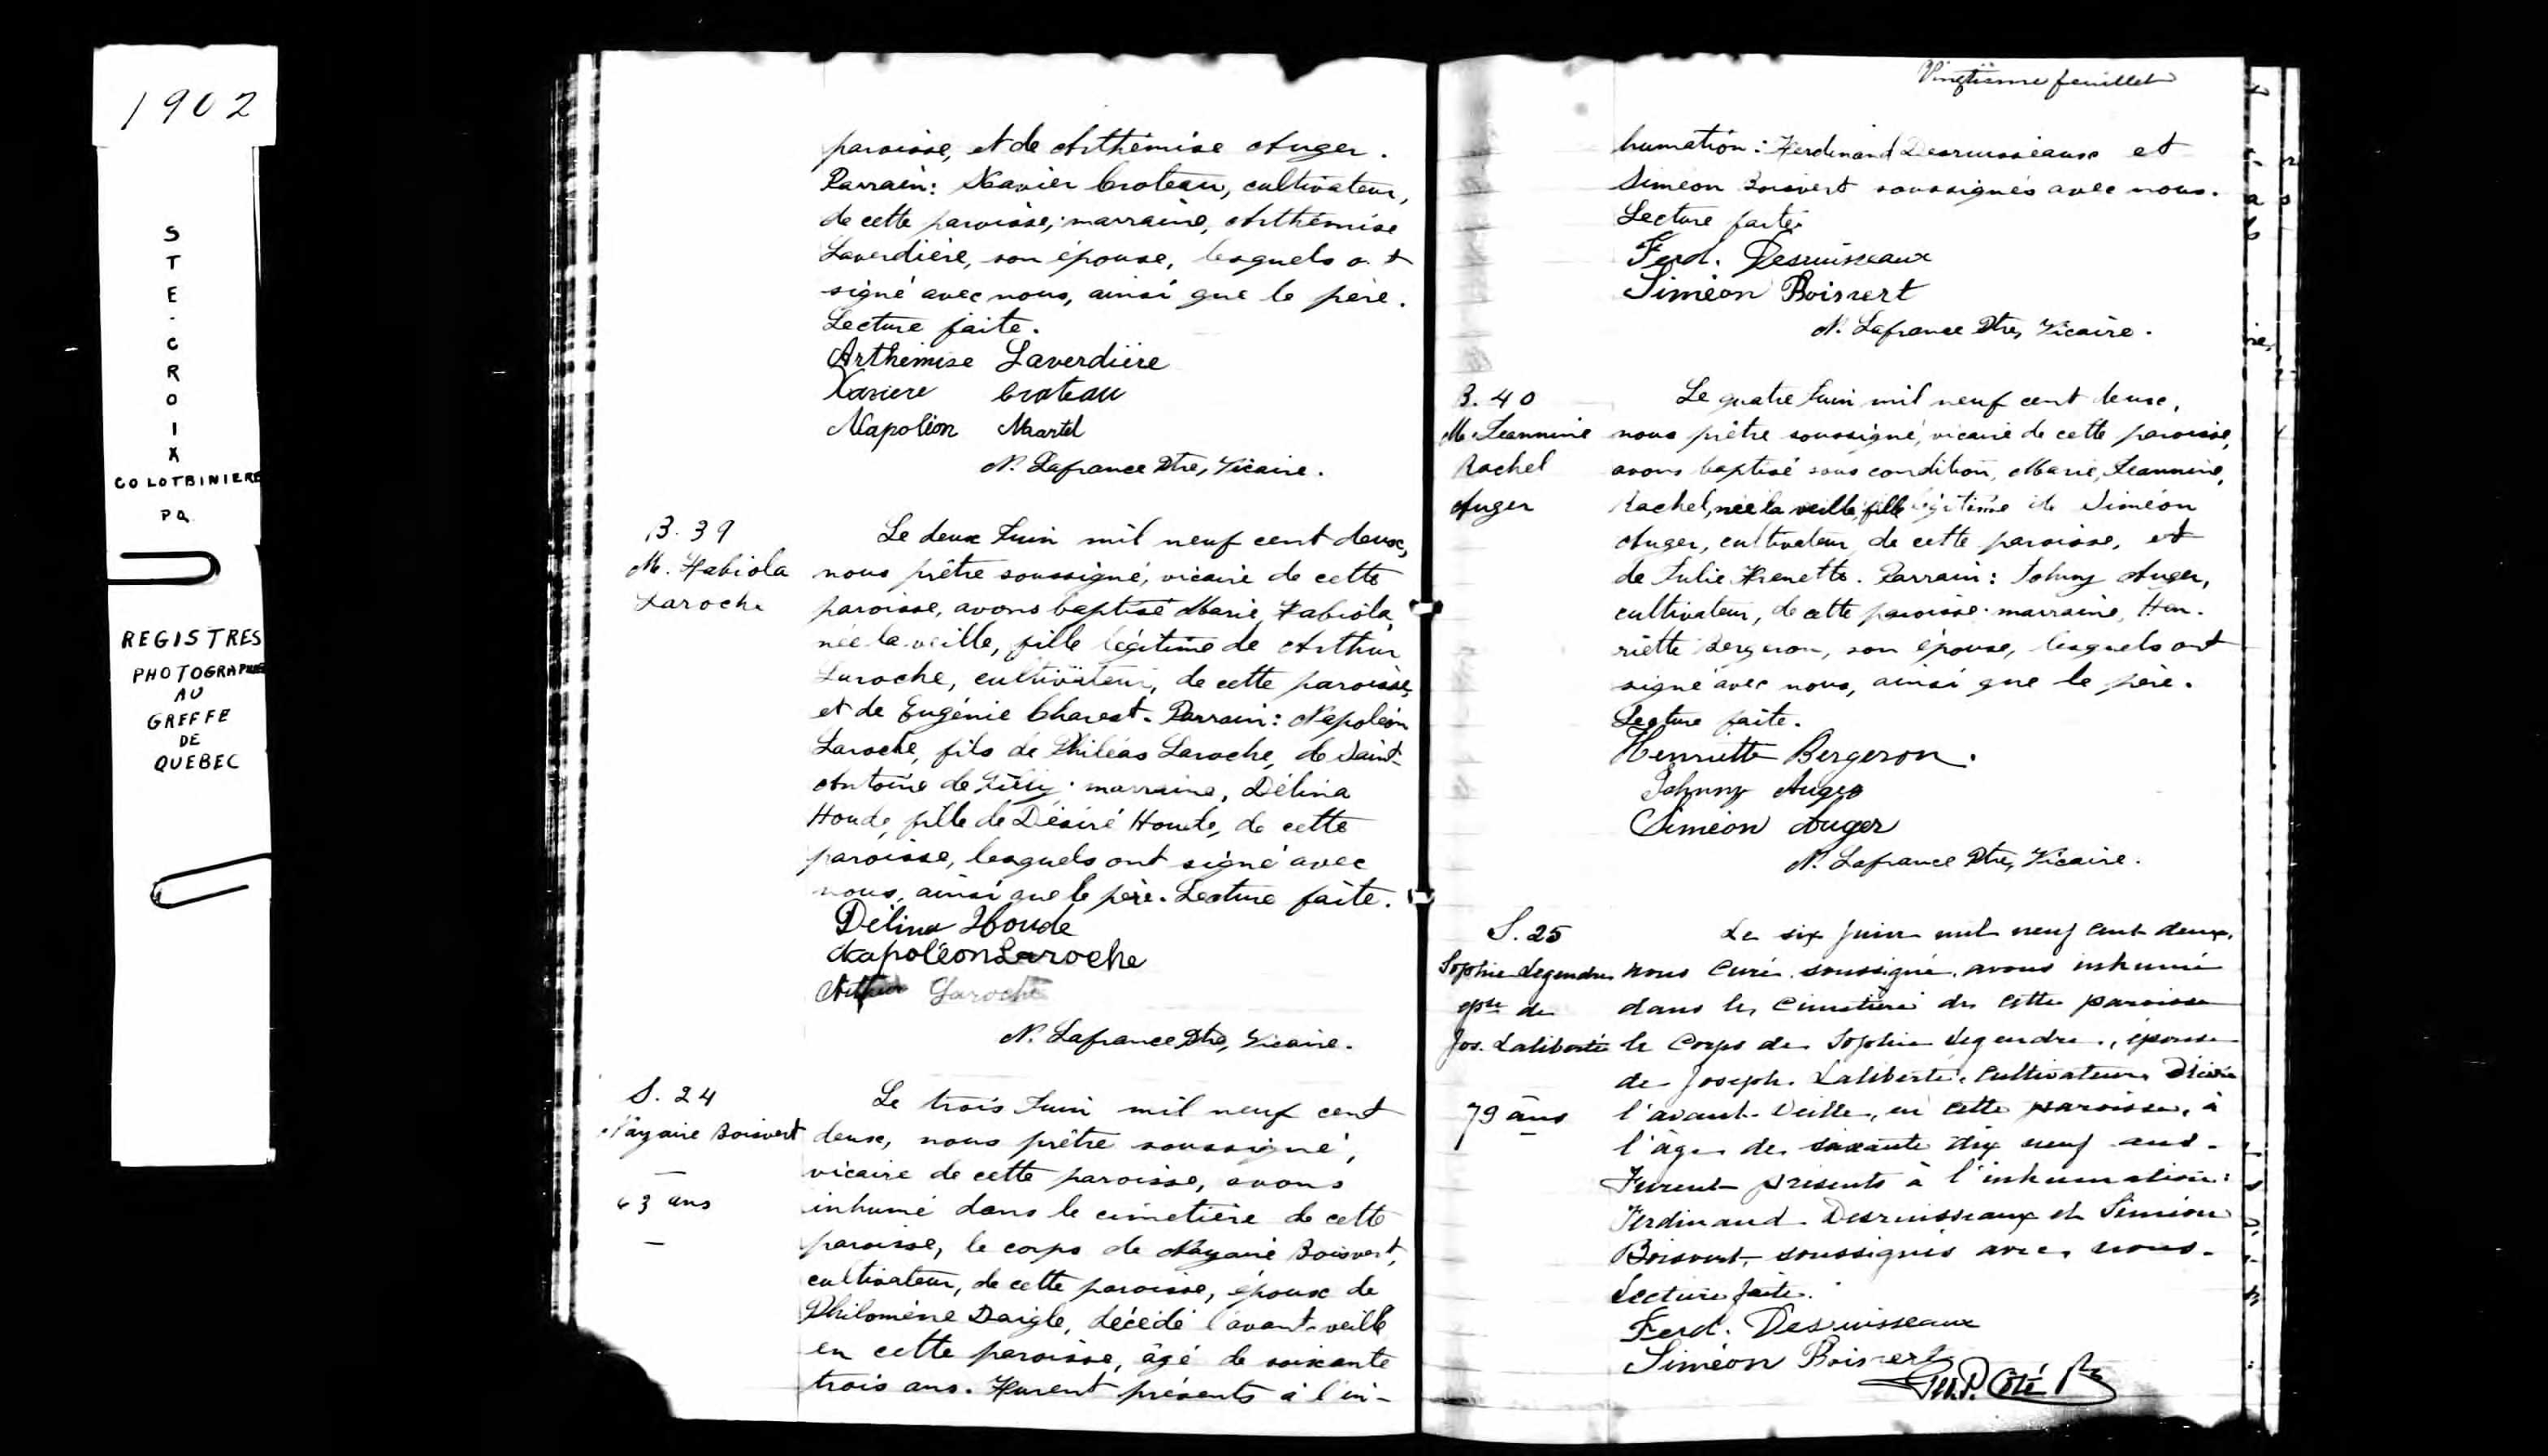 1902
S
T
E
-
C
R
O
I
X
CO LOTBINIERE
PQ
REGISTRES
PHOTOGRAPHIE
AU
GREFFE
DE
QUEBEC
paroisse, et de Arthémise Auger.
Parrain: Xavier Croteau, cultivateur,
de cette paroisse; marraine, Arthémise
Laverdière, son épouse, lesquels ont
signé avec nous, ainsi que le père.
Lecture faite.
Arthémise Laverdière
Xaviere Croteau
Napoléon Martel
N. Lafrance Ptre, Vicaire.
B. 39
M. Fabiola
Laroche
Le deux Juin mil neuf cent deux,
nous prêtre soussigné, vicaire de cette
paroisse, avons baptisé Marie, Fabiola,
née la veille, fille légitime de Arthur
Laroche, cultivateur, de cette paroisse,
et de Eugénie Charest. Parrain: Napoléon
Laroche, fils de Philéas Laroche, de Saint-
Antoine de Tilly; marraine, Délina
Houde, fille de Désiré Houde, de cette
paroisse, lesquels ont signé avec
nous, ainsi que le père. Lecture faite.
Délina Houde
Napoléon Laroche
Arthur Laroche
N. Lafrance Ptre, Vicaire.
S. 24
Boisvert
63 ans
Le trois Juin mil neuf cent
deux, nous prêtre soussigné,
vicaire de cette paroisse, avons
inhumé dans le cimetière de cette
paroisse, le corps de Boisvert,
cultivateur, de cette paroisse, époux de
Philomène Daigle, décédé l'avant-veille
en cette paroisse, âgé de soixante
trois ans. Furent présents à l'in-
Vingtième feuillet
humation: Ferdinand Desruisseaux et
Siméon Boisvert soussignés avec nous.
Lecture faite.
Ferd. Desruisseaux
Siméon Boisvert
N. Lafrance Ptre, Vicaire.
B. 40
M. Jeannine
Rachel
Auger
Le quatre Juin mil neuf cent deux,
nous prêtre soussigné, vicaire de cette paroisse,
avons baptisé sous condition, Marie, Jeannine,
Rachel, née la veille, fille légitime de Siméon
Auger, cultivateur, de cette paroisse, et
de Julie Frenette. Parrain: Johnny Auger,
cultivateur, de cette paroisse; marraine, Hen-
riette Bergeron, son épouse, lesquels ont
signé avec nous, ainsi que le père.
Lecture faite.
Henriette Bergeron.
Johnny Auger
Siméon Auger
N. Lafrance Ptre, Vicaire.
S. 25
Sophie Legendre
epse de
Jos. Laliberté
79 ans
Le six Juin mil neuf cent deux,
nous Curé soussigné, avons inhumé
dans le Cimetière de cette paroisse
le Corps de Sophie Legendre, épouse
de Joseph Laliberté, Cultivateur, décédée
l'avant-veille, en cette paroisse, à
l'âge de soixante dix neuf ans.
Furent présents à l'inhumation:
Ferdinand Desruisseaux et Siméon
Boisvert, soussignés avec nous.
Lecture faite.
Ferd. Desruisseaux
Siméon Boisvert
Côté Ptre